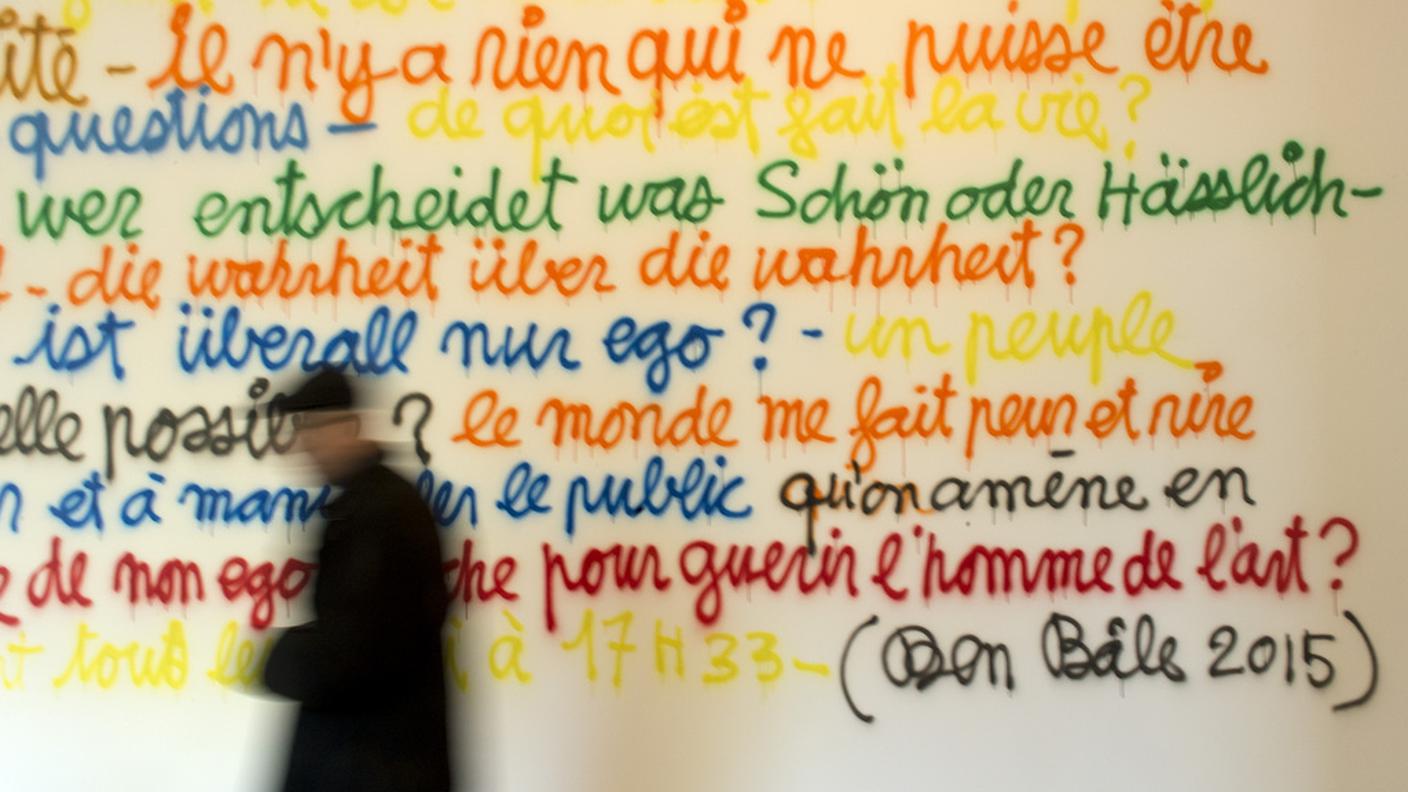 ité - il n'y a rien qui ne puisse être
questions - de quoi est fait la vie?
wer entscheidet was Schön oder Hässlich-
- die wahrheit über die wahrheit?
ist überall nur ego? - un peuple
elle possi ? le monde me fait peur et rire
et à man ler le public qu'on amène en
de non ego che pour guerir l'homme de l'art?
t tous le i à 17H33- (Ben Bâle 2015)